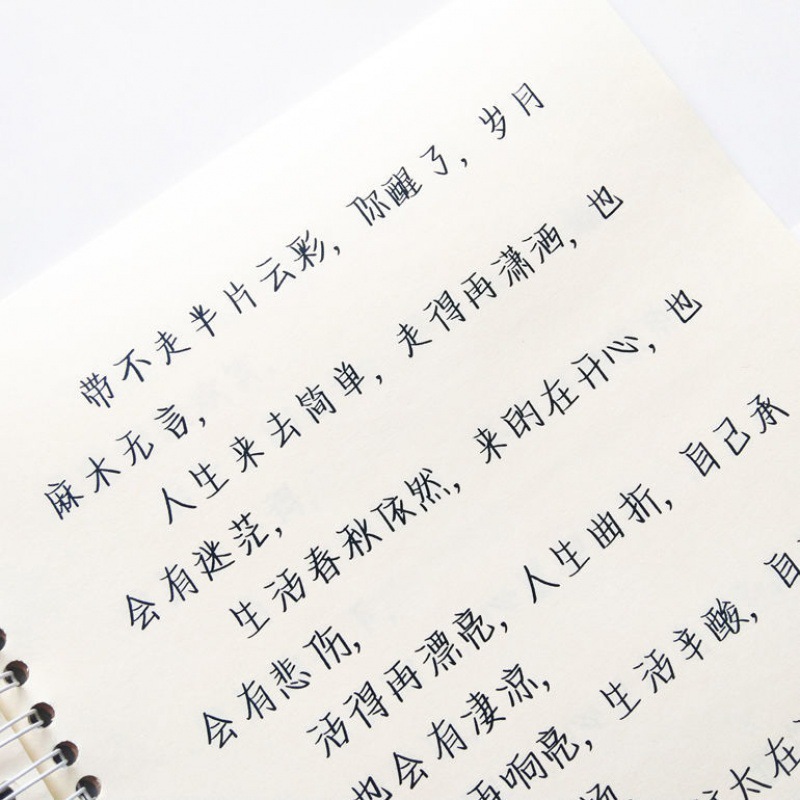 带不走半片云彩，你醒了，岁月
麻木无言，
人生来去简单，走得再潇洒，也
会有迷茫，
生活春秋依然，来的在开心，也
会有悲伤，
活得再漂亮，人生曲折，自己承
也会有凄凉，
再响亮，生活辛酸，自
太在